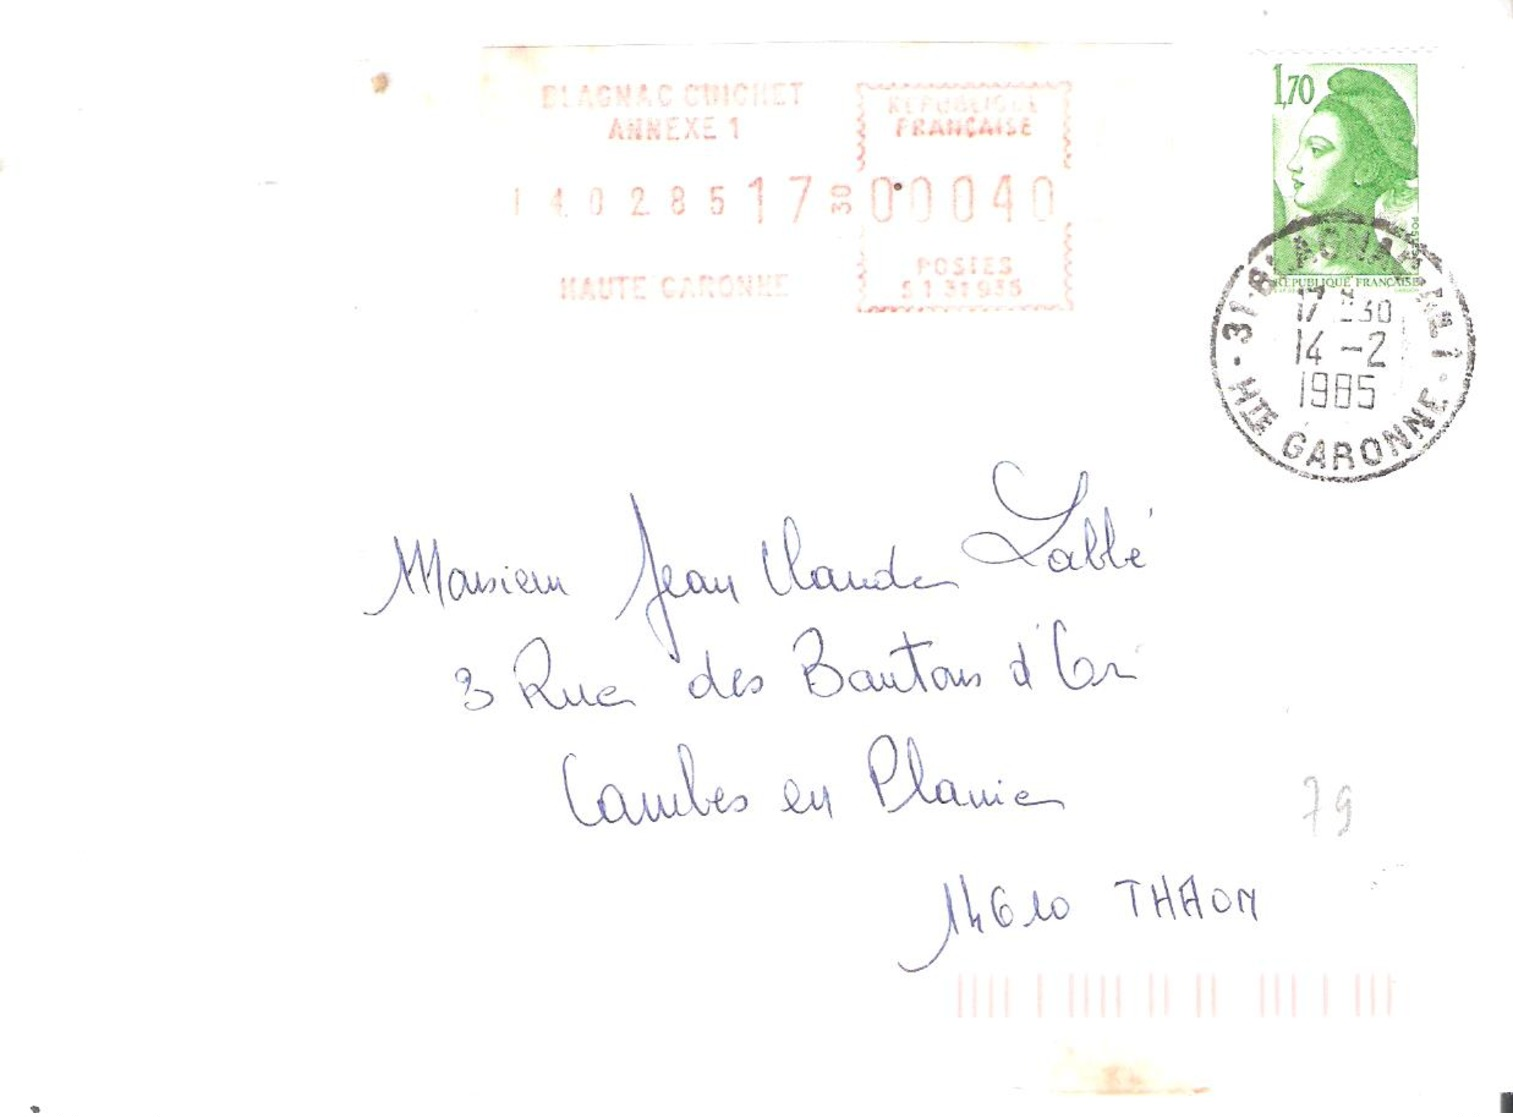 BLAGNAC GUICHET
ANNEXE 1
140285 17 30
HAUTE GARONNE
REPUBLIQUE
FRANÇAISE
00040
POSTES
1,70
POSTES
REPUBLIQUE FRANÇAISE
31 BLAGNAC ANNEXE 1
17 H 30
14 - 2
1985
HTE GARONNE
Monsieur Jean Claude Labbé
3 Rue des Boutons d'Or
Cambes en Plaine
14610 THAON
79